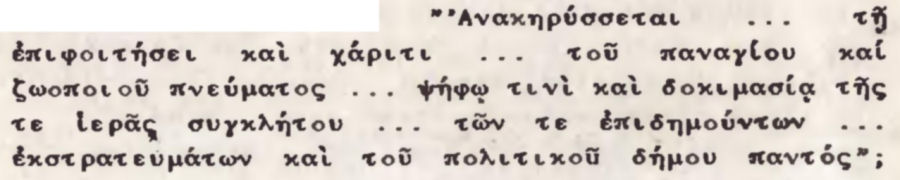 "'Ανακηρύσσεται ... τῇ
ἐπιφοιτήσει καὶ χάριτι ... τοῦ παναγίου καί
ζωοποιοῦ πνεύματος ... ψήφῳ τινὶ καὶ δοκιμασίᾳ τῆς
τε ἱερᾶς συγκλήτου ... τῶν τε ἐπιδημούντων ...
ἐκστρατευμάτων καὶ τοῦ πολιτικοῦ δήμου παντός";